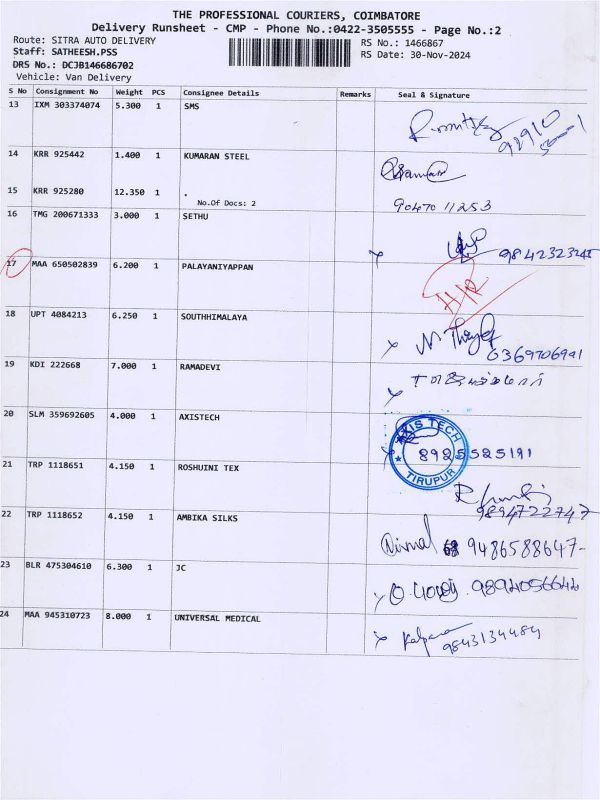 THE PROFESSIONAL COURIERS, COIMBATORE
Delivery Runsheet - CMP - Phone No.:0422-3505555 - Page No.:2
Route: SITRA AUTO DELIVERY
RS No.: 1466867
Staff: SATHEESH.PSS
RS Date: 30-Nov-2024
DRS No.: DCJB146686702
Vehicle: Van Delivery
S No Consignment No Weight PCS Consignee Details Remarks Seal & Signature
13 IXM 303374074 5.300 1 SMS
14 KRR 925442 1.400 1 KUMARAN STEEL
15 KRR 925280 12.350 1 .
No.Of Docs: 2
90470 11253
16 TMG 200671333 3.000 1 SETHU
9842323245
17 MAA 650502839 6.200 1 PALAYANIYAPPAN
18 UPT 4084213 6.250 1 SOUTHHIMALAYA
6369706991
19 KDI 222668 7.000 1 RAMADEVI
20 SLM 359692605 4.000 1 AXISTECH
AXIS TECH
8925525191
TIRUPUR
21 TRP 1118651 4.150 1 ROSHUINI TEX
9894722747
22 TRP 1118652 4.150 1 AMBIKA SILKS
Nirmal 9486588647-
23 BLR 475304610 6.300 1 JC
9894056642
24 MAA 945310723 8.000 1 UNIVERSAL MEDICAL
Kalpana 9843134484